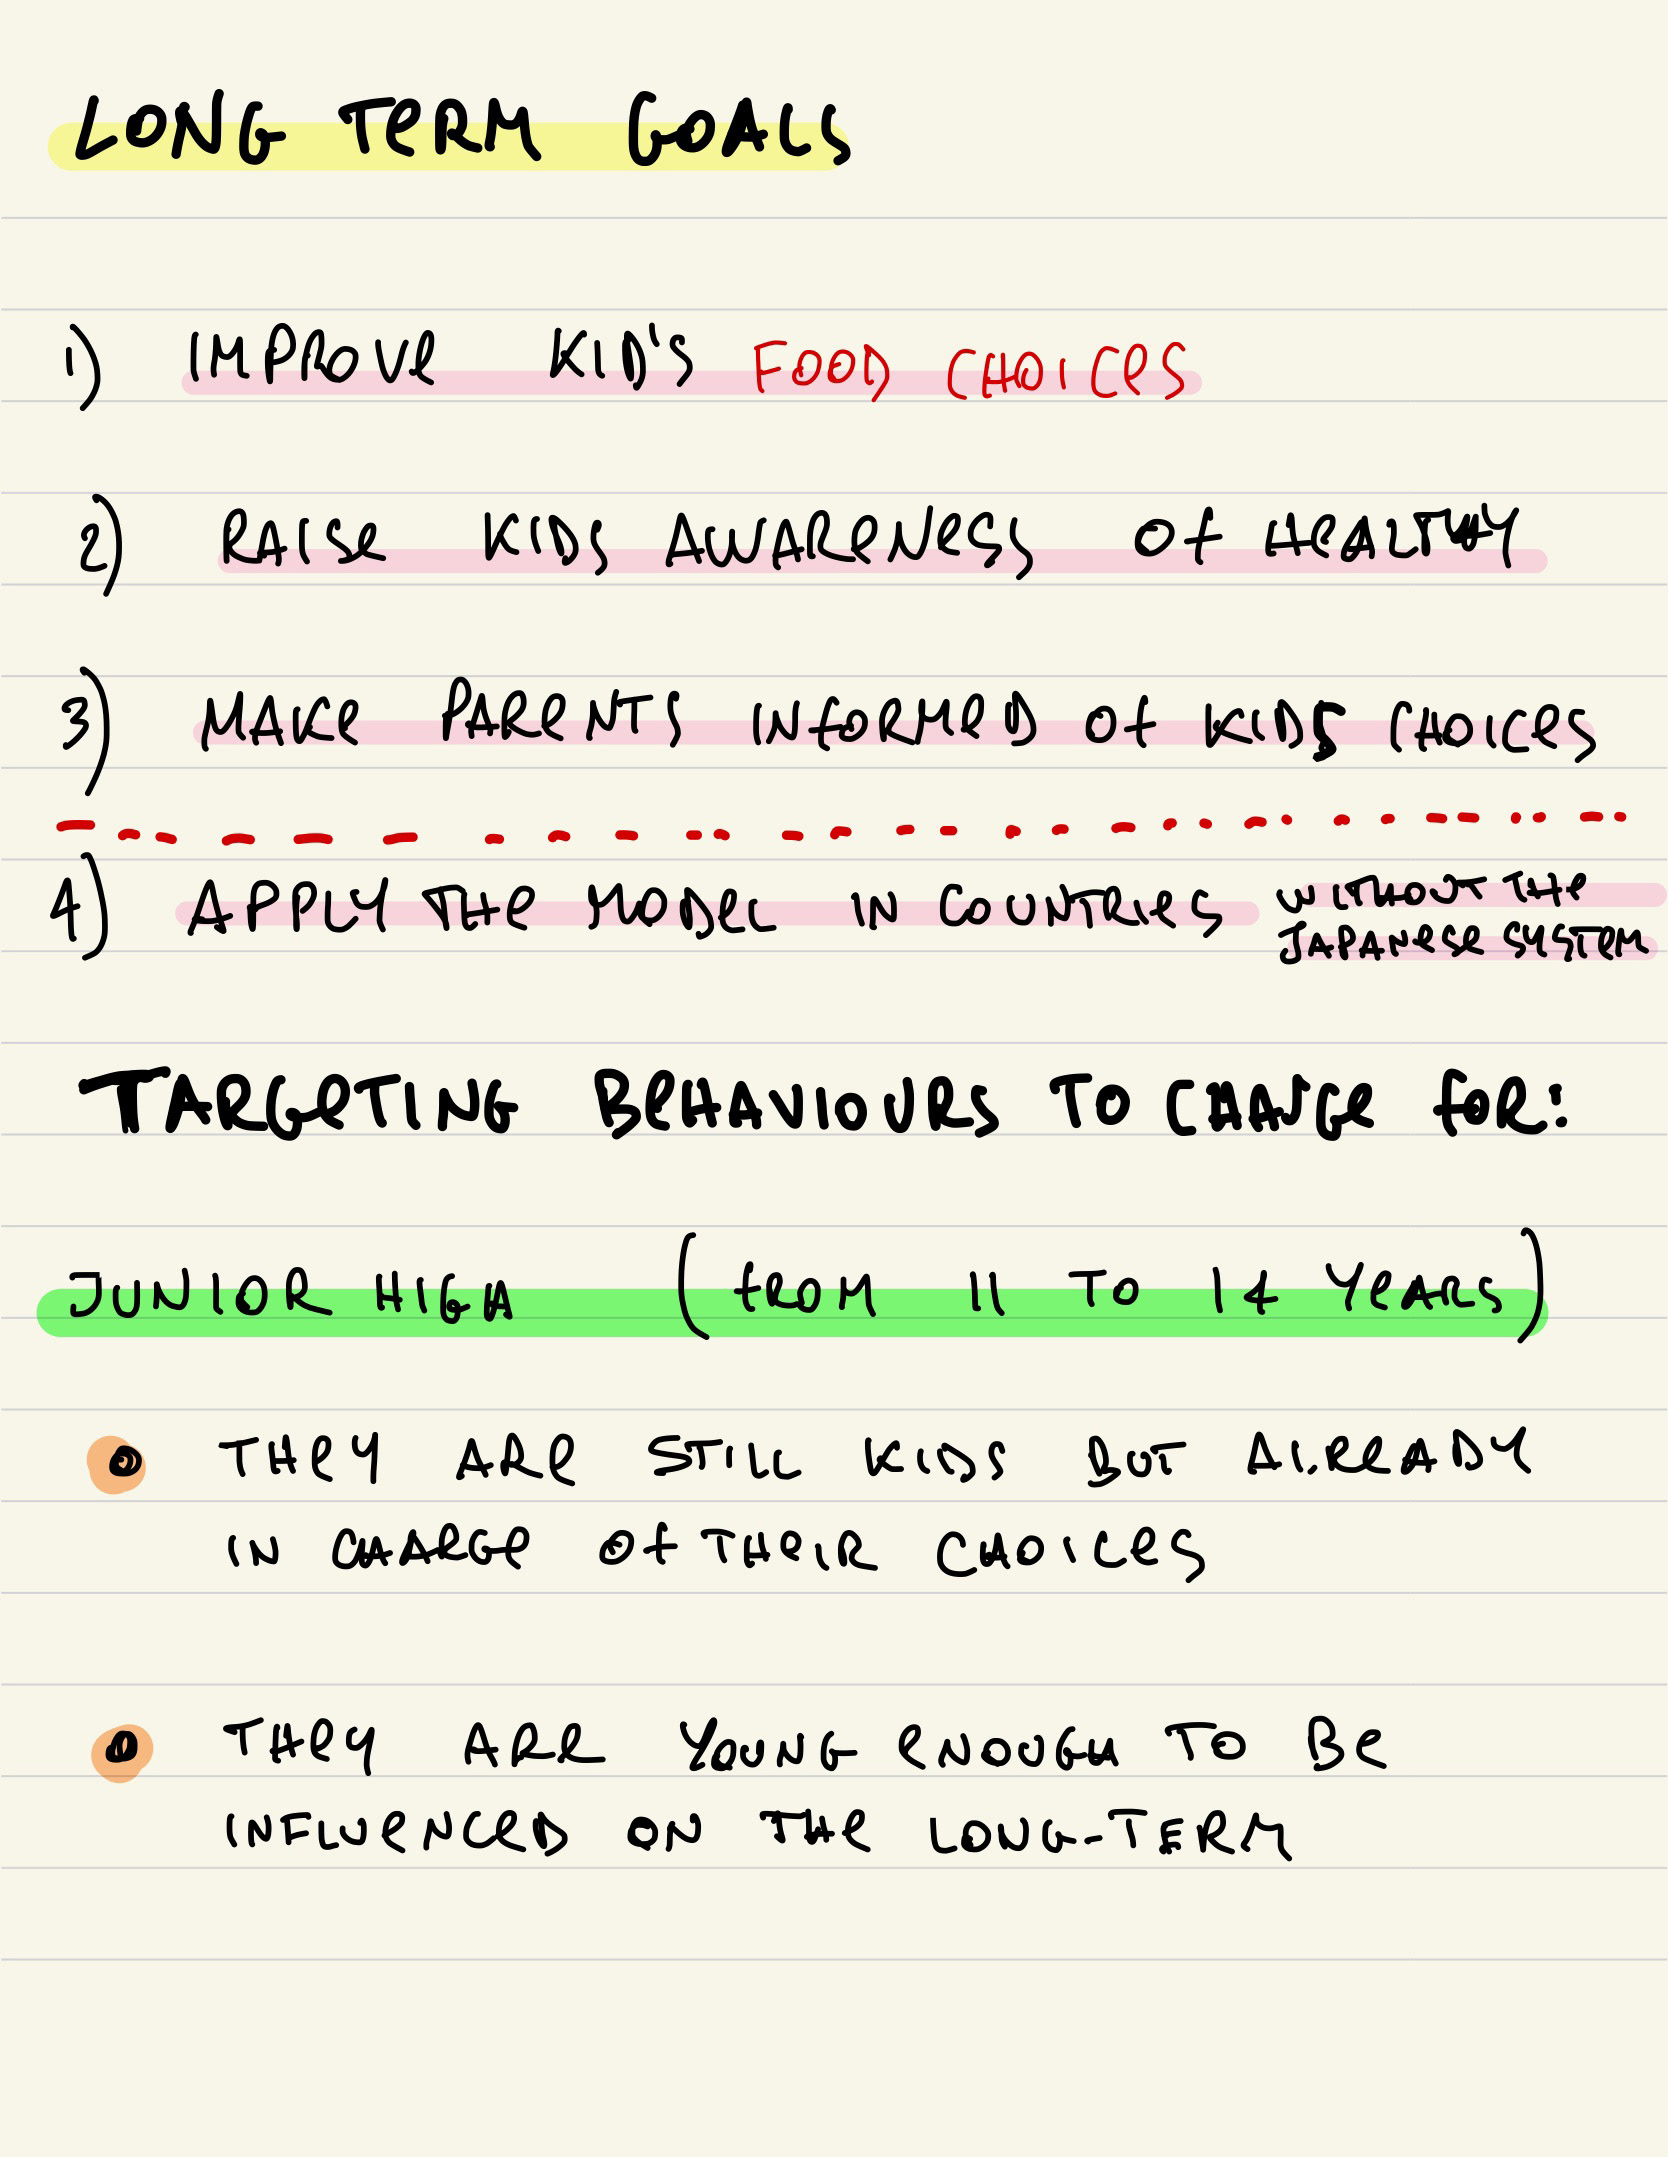 LONG TERM GOALS
1) IMPROVE KID'S FOOD CHOICES
2) RAISE KIDS AWARENESS OF HEALTHY
3) MAKE PARENTS INFORMED OF KIDS CHOICES
4) APPLY THE MODEL IN COUNTRIES WITHOUT THE
JAPANESE SYSTEM
TARGETING BEHAVIOURS TO CHANGE FOR:
JUNIOR HIGH (FROM 11 TO 14 YEARS)
• THEY ARE STILL KIDS BUT ALREADY
IN CHARGE OF THEIR CHOICES
• THEY ARE YOUNG ENOUGH TO BE
INFLUENCED ON THE LONG-TERM